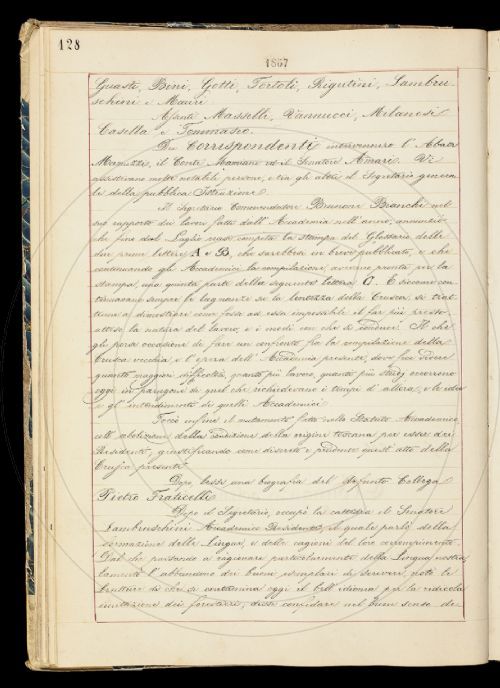 128
1867
Guasti, Bini, Gotti, Tortoli, Rigutini, Lambru-
schini e Mauri.
Assenti Masselli, Vannucci, Milanesi
Casella e Tommaseo.
Dei Corrispondenti intervennero l'Abate
Manuzzi, il Conte Mamiani ed il Senatore Amari. Vi
assistevano molte notabili persone, e tra gli altri il Segretario genera
le della pubblica Istruzione.
Il Segretario Commendatore Brunone Bianchi nel
suo rapporto dei lavori fatti dall'Accademia nell'anno, annunziò
che fino dal Luglio era compita la stampa del Glossario delle
due prime lettere A e B, che sarebbesi in breve pubblicato, e che
continuando gli Accademici la compilazione, avevano pronta per la
stampa, una quinta parte della seguente lettera C. E siccome con-
tinuavano sempre le lagnanze su la lentezza della Crusca si trat
tenne a dimostrare come fosse ad essa impossibile il far più presto
attesa la natura del lavoro, e i modi con che si conduce. Il che
gli porse occasione di fare un confronto fra la compilazione della
Crusca vecchia e l'opera dell'Accademia presente, dove fece vedere
quanto maggiori difficoltà, quanto più lavoro, quanto più studj occorrono
oggi in paragone di quel che richiedevano i tempi d'allora, e le idee
e gl'intendimenti di quelli Accademici.
Toccò infine il mutamento fatto nello Statuto Accademico
coll'abolizione della condizione della origine toscana per esser dei
Residenti, giustificando come discreto e prudente quest'atto della
Crusca presente.
Dopo, lesse una biografia del defunto Collega
Pietro Fraticelli
Dopo il Segretario, occupò la cattedra il Senatore
Lambruschini Accademico Residente, il quale parlò della
formazione delle Lingue, e delle cagioni del loro corrompimento.
Dal che passando a ragionare particolarmente della Lingua nostra,
lamentò l'abbandono dei buoni esemplari di scrivere, notò le
brutture di che si contamina oggi il bell'idioma per la ridicola
imitazione dei forestieri, disse confidare nel buon senso dei